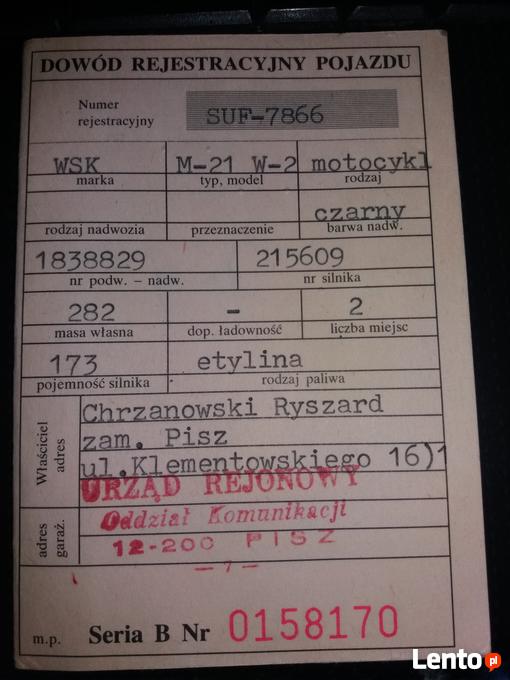 DOWÓD REJESTRACYJNY POJAZDU
Numer rejestracyjny
SUF-7866
WSK M-21 W-2 motocykl
marka typ, model rodzaj
czarny
rodzaj nadwozia przeznaczenie barwa nadw.
1838829 215609
nr podw. – nadw. nr silnika
282 – 2
masa własna dop. ładowność liczba miejsc
173 etylina
pojemność silnika rodzaj paliwa
Właściciel adres
Chrzanowski Ryszard
zam. Pisz
ul.Klementowskiego 16)1
URZĄD REJONOWY
adres garaż.
Oddział Komunikacji
12-200 PISZ
— 7 —
m.p. Seria B Nr 0158170
Lento.pl